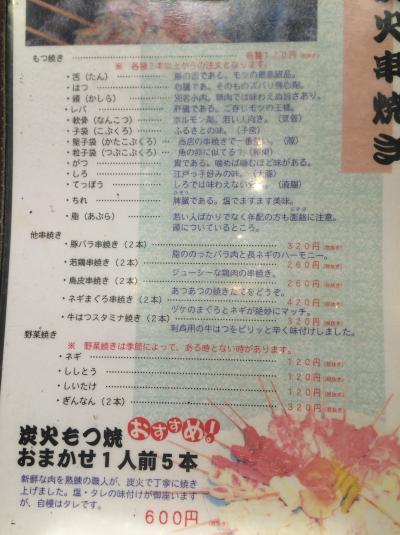 炭火串焼き
もつ焼き 各種120円(税抜き)
※ 各種2本以上からの注文となります。
・舌(たん) 豚の舌である。モツの最高級品。
・はつ 心臓である。そのものズバリ強心剤。
・頭(かしら) 別名小肉。精肉では味わえぬ旨さあり。
・レバ 肝臓である。ご存じモツの王様。
・軟骨(なんこつ) ホルモン剤。若い人向き。(気管)
・子袋(こぶくろ) ふるさとの味。(子宮)
・堅子袋(かたこぶくろ) 当店の串焼きで一番堅い。
・粒子袋(つぶこぶくろ) 魚の卵に似てる?(卵巣)
・がつ 胃である。噛めば噛むほど味がある。
・しろ 江戸っ子好みの味。(大腸)
・てっぽう しろでは味わえない(直腸)
・ちれ 脾臓である。塩でますます美味。
・脂(あぶら) 若い人ばかりでなく年配の方も面皰に注意。
頭についているところ。
他串焼き
・豚バラ串焼き(2本) 320円(税抜き)
脂ののったバラ肉と長ネギのハーモニー。
・若鶏串焼き(2本) 260円(税抜き)
ジューシーな鶏肉の串焼き。
・鳥皮串焼き(2本) 260円(税抜き)
あつあつの焼きたてをどうぞ。
・ネギまぐろ串焼き(2本) 420円(税抜き)
ヅケのまぐろとネギが絶妙にマッチ。
・牛はつスタミナ焼き(2本) 320円(税抜き)
刺身用の牛はつをピリッと辛く味付けしました。
野菜焼き
※ 野菜焼きは季節によって、ある時とない時があります。
・ネギ 120円(税抜き)
・ししとう 120円(税抜き)
・しいたけ 120円(税抜き)
・ぎんなん(2本) 320円(税抜き)
炭火もつ焼 おすすめ!
おまかせ1人前5本
新鮮な肉を熟練の職人が、炭火で丁寧に焼き
上げました。塩・タレの味付けが御座います
が、自慢はタレです。
600円(税抜き)